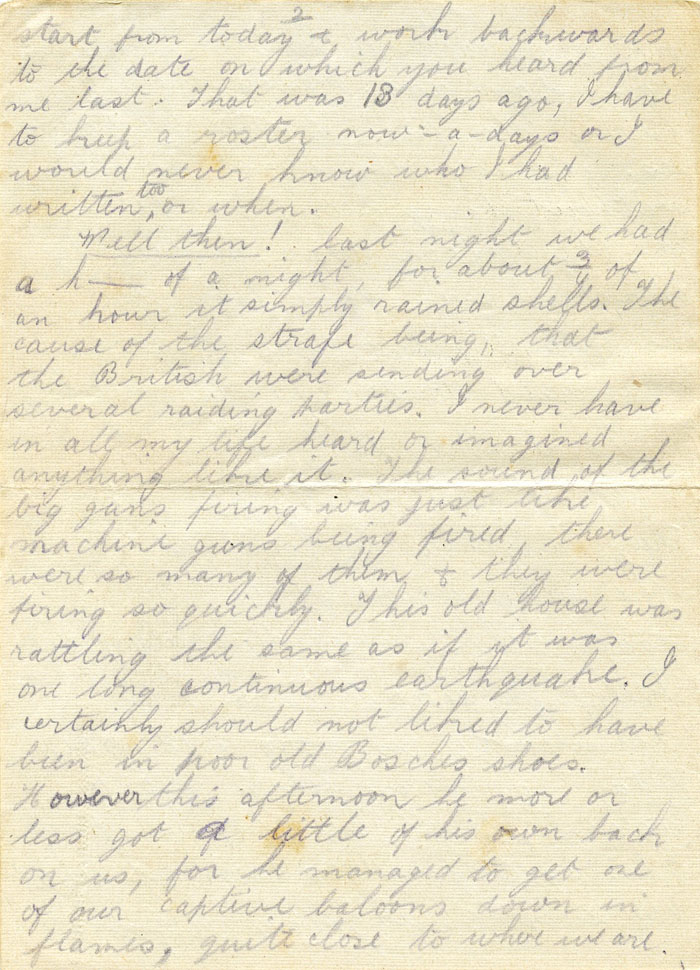 2
start from today & work backwards
to the date on which you heard from
me last. That was 18 days ago, I have
to keep a roster now-a-days or I
would never know who I had
written too, or when.
Well then! last night we had
a h—— of a night, for about 3/4 of
an hour it simply rained shells. The
cause of the strafe being, that
the British were sending over
several raiding parties. I never have
in all my life heard or imagined
anything like it. The sound of the
big guns firing was just like
machine guns being fired, there
were so many of them & they were
firing so quickly. This old house was
rattling the same as if it was
one long continuous earthquake. I
certainly should not liked to have
been in poor old Bosches shoes.
However this afternoon he more or
less got a little of his own back
on us, for he managed to get one
of our captive baloons down in
flames, quite close to where we are.